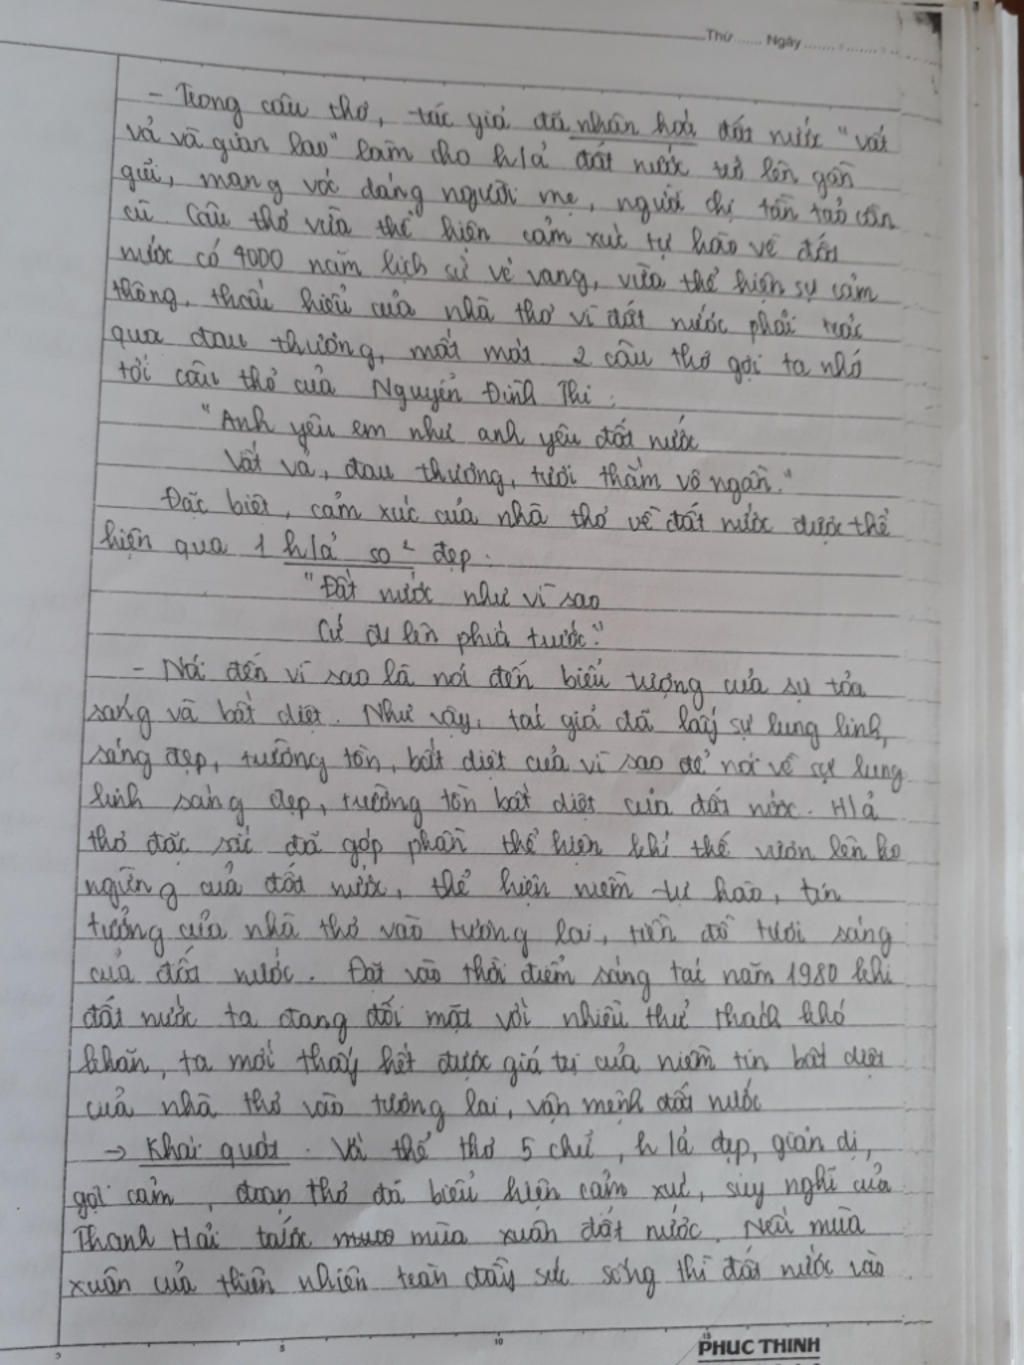 Thứ ...... Ngày ..............
- Trong câu thơ, tác giả đã nhân hoá đất nước "vất
vả và gian lao" làm cho h/ả đất nước trở lên gần
gũi, mang vóc dáng người mẹ, người chị tần tảo cần
cù Câu thơ vừa thể hiện cảm xúc tự hào về đất
nước có 4000 năm lịch sử vẻ vang, vừa thể hiện sự cảm
thông, thấu hiểu của nhà thơ vì đất nước phải trải
qua đau thương, mất mát 2 câu thơ gợi ta nhớ
tới câu thơ của Nguyễn Đình Thi :
"Anh yêu em như anh yêu đất nước
Vất vả, đau thương, tươi thắm vô ngần."
Đặc biệt, cảm xúc của nhà thơ về đất nước được thể
hiện qua 1 h/ả so² đẹp :
"Đất nước như vì sao
Cứ đi lên phía trước."
- Nói đến vì sao là nói đến biểu tượng của sự tỏa
sáng và bất diệt. Như vậy, tác giả đã lấy sự lung linh,
sáng đẹp, trường tồn, bất diệt của vì sao để nói về sự lung
linh sáng đẹp, trường tồn bất diệt của đất nước. H/ả
thơ đặc sắc đã góp phần thể hiện khí thế vươn lên ko
ngừng của đất nước, thể hiện niềm tự hào, tin
tưởng của nhà thơ vào tương lai, tiền đồ tươi sáng
của đất nước. Đặt vào thời điểm sáng tác năm 1980 khi
đất nước ta đang đối mặt với nhiều thử thách khó
khăn, ta mới thấy hết được giá trị của niềm tin bất diệt
của nhà thơ vào tương lai, vận mệnh đất nước
→ Khái quát . Với thể thơ 5 chữ, h/ả đẹp, giản dị,
gợi cảm, đoạn thơ đã biểu hiện cảm xúc, suy nghĩ của
Thanh Hải trước mùa xuân đất nước. Nếu mùa
xuân của thiên nhiên tràn đầy sức sống thì đất nước vào
5 10 15
PHUC THINH